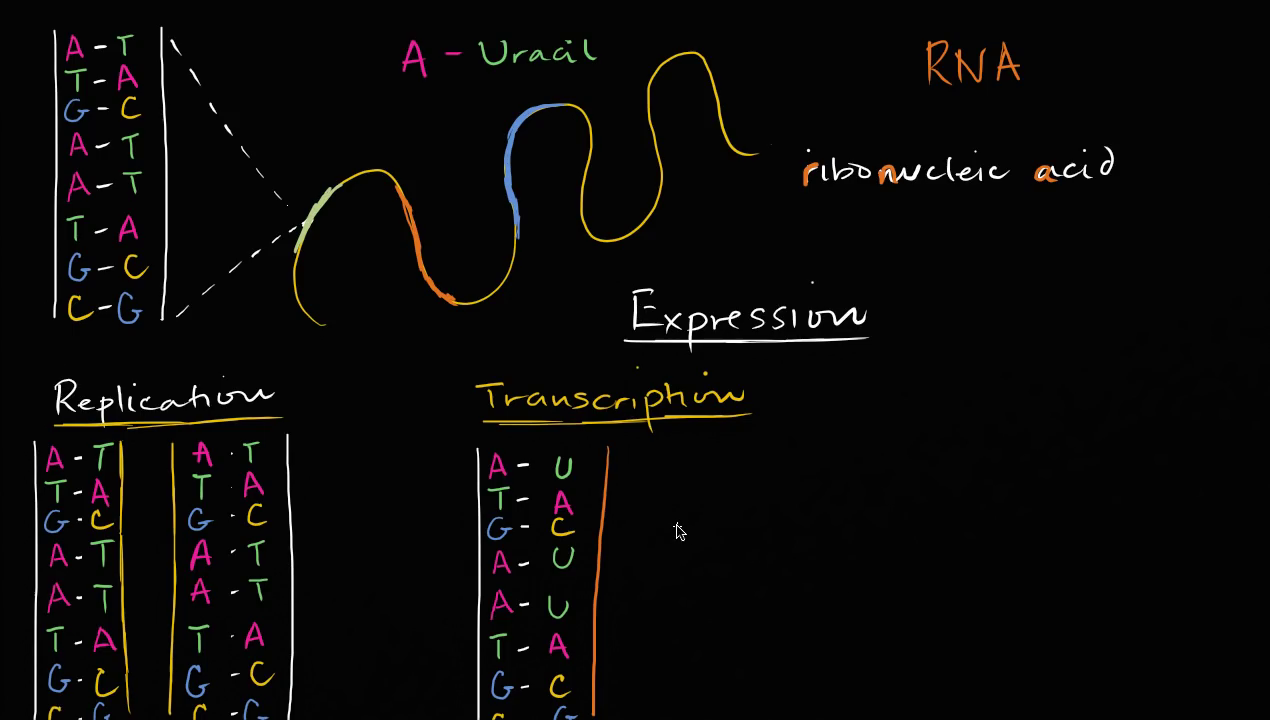 A - T
T - A
G - C
A - T
A - T
T - A
G - C
C - G
A - Uracil
RNA
ribonucleic acid
Expression
Replication
A - T A · T
T - A T · A
G - C G · C
A - T A · T
A - T A · T
T - A T · A
G - C G · C
C - G C - G
Transcription
A - U
T - A
G - C
A - U
A - U
T - A
G - C
C G